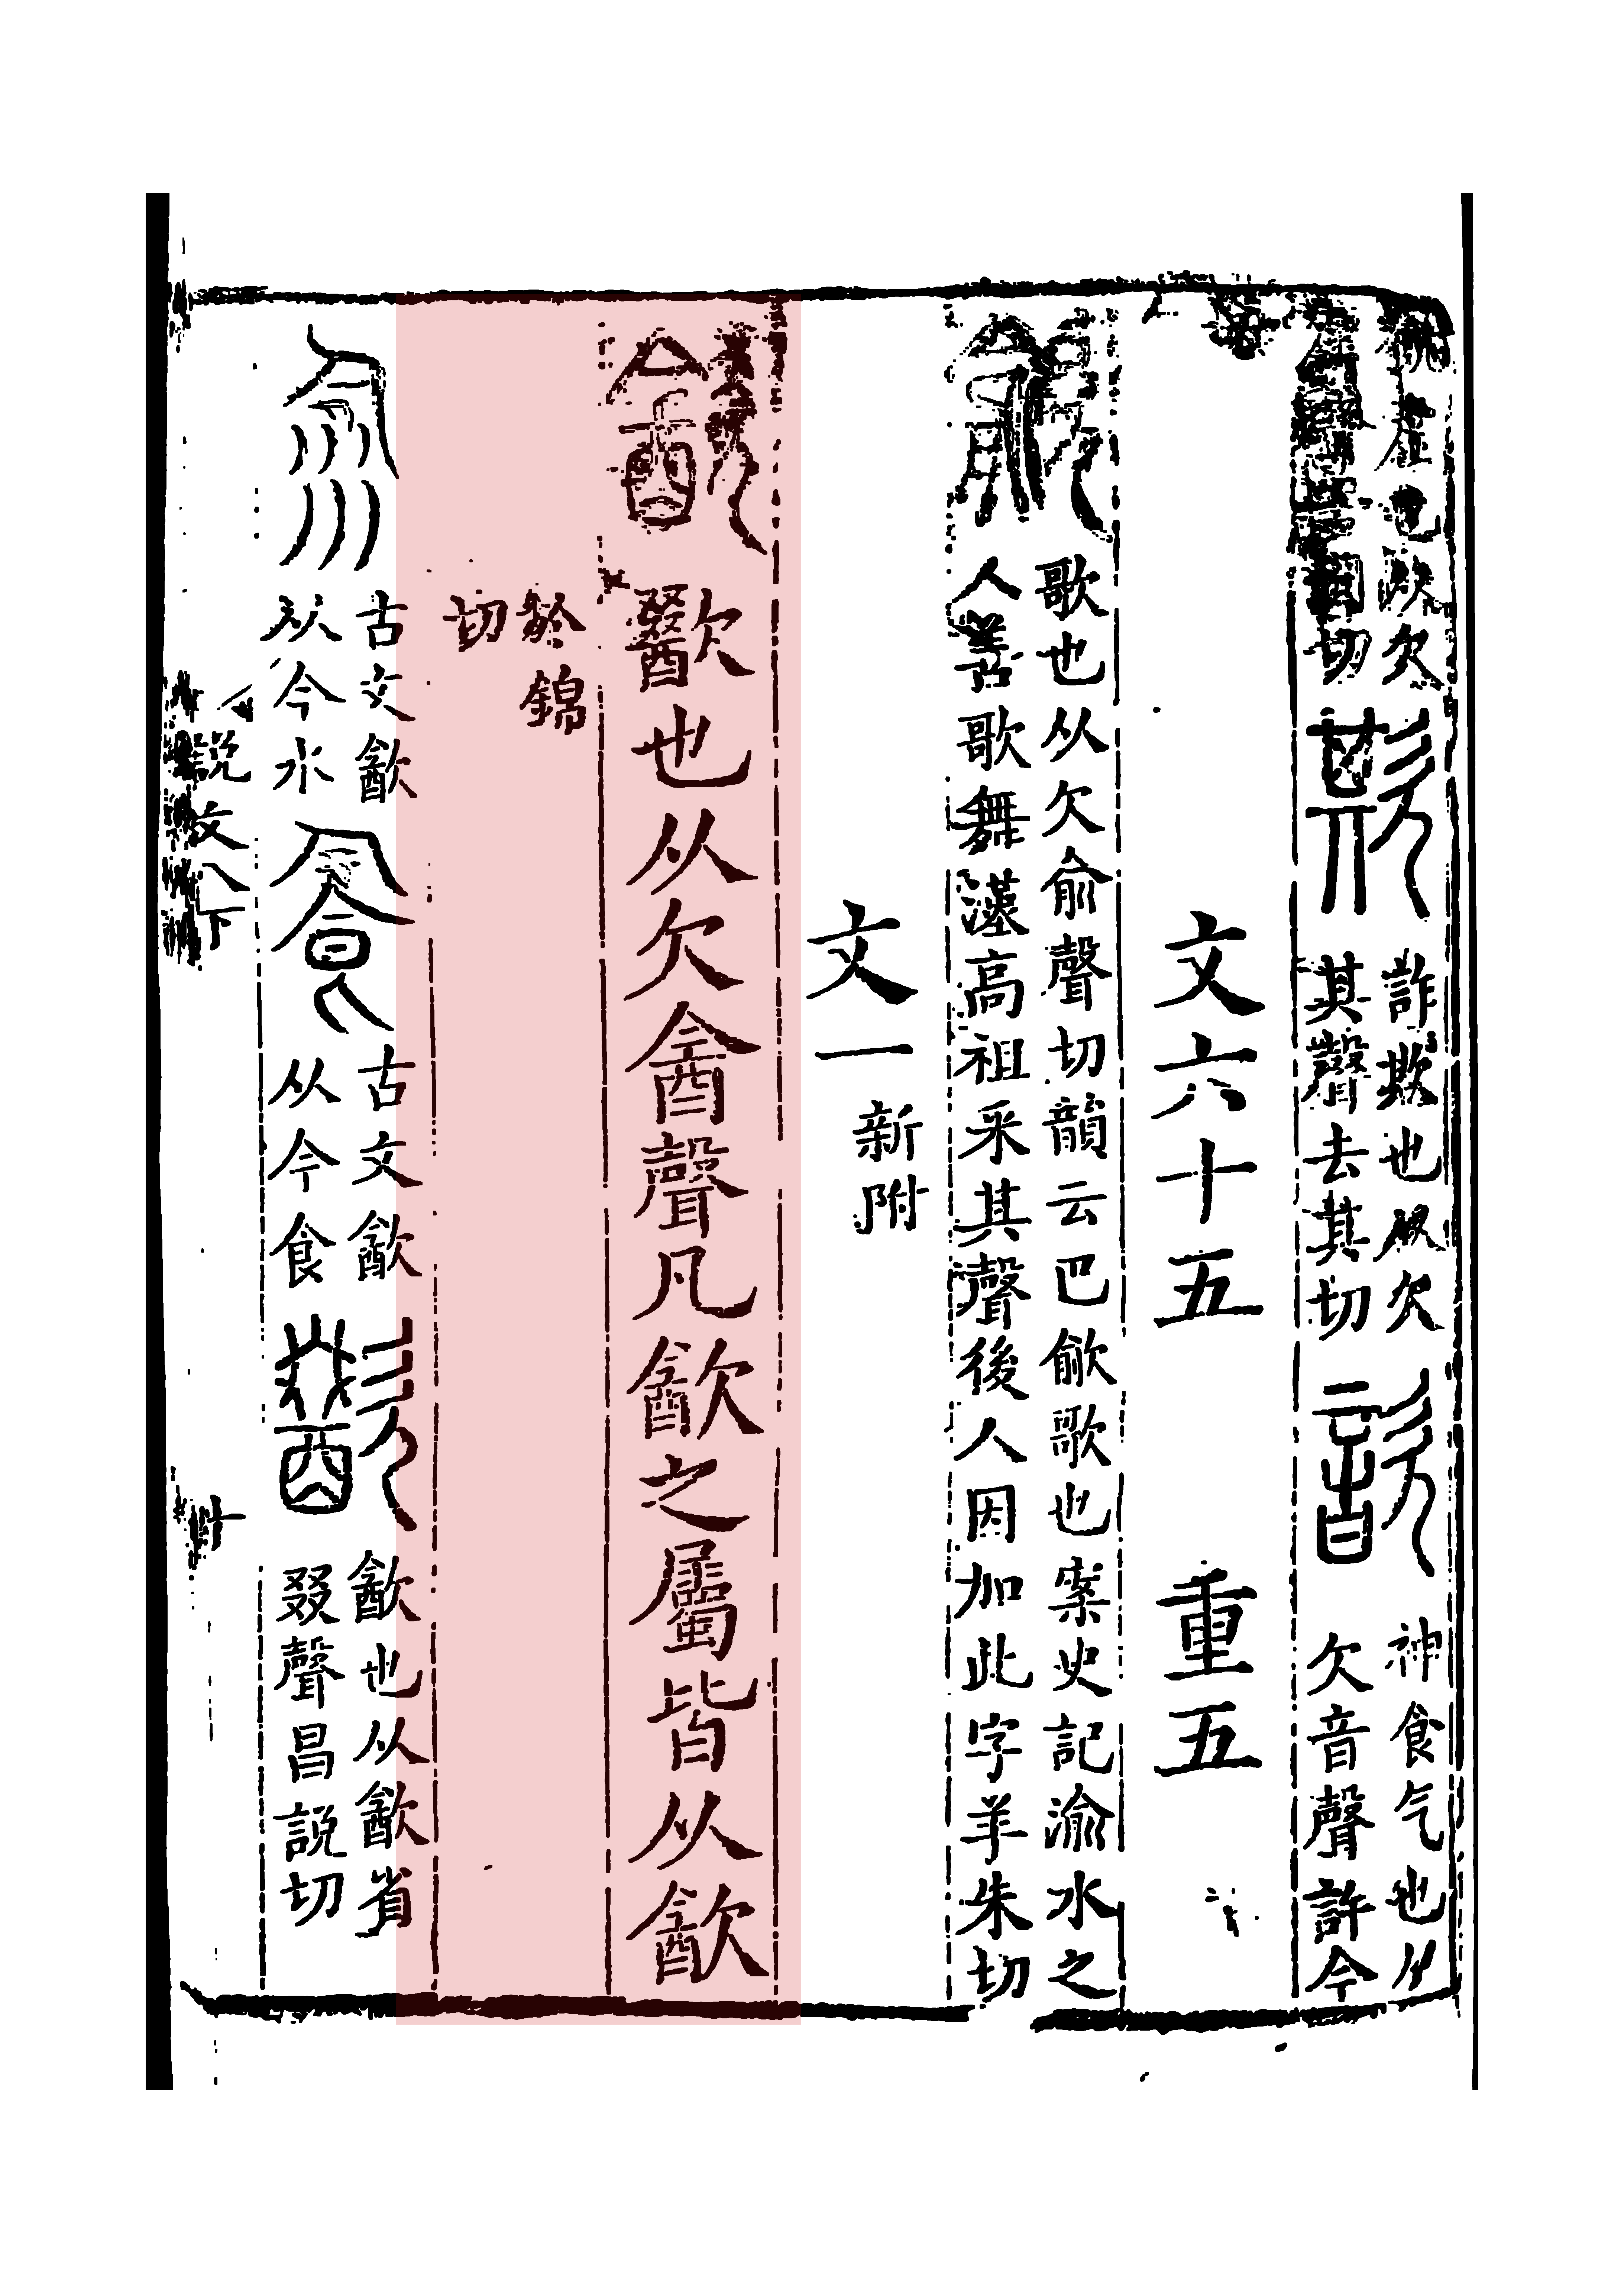 也从欠
切
其聲去其切
詐欺也从欠
欠音聲許今
神食气也从
文六十五　重五
歌也从欠俞聲切韻云巴歈歌也案史記渝水之
人善歌舞漢高祖采其聲後人因加此字羊朱切
文一新附
㱃 歠也从欠酓聲凡㱃之屬皆从㱃
於錦
切
古文㱃
从今水
古文㱃
从今食
㱃也从㱃省
叕聲昌說切
説文八下
十